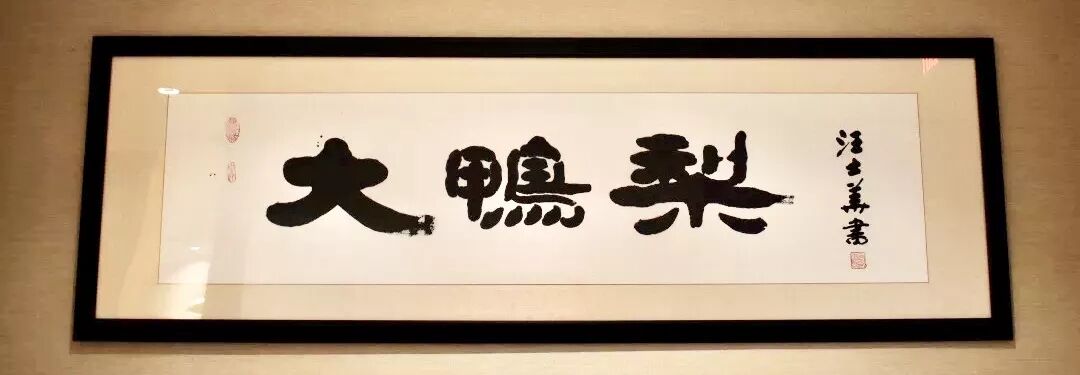 大鴨梨
汪士華書